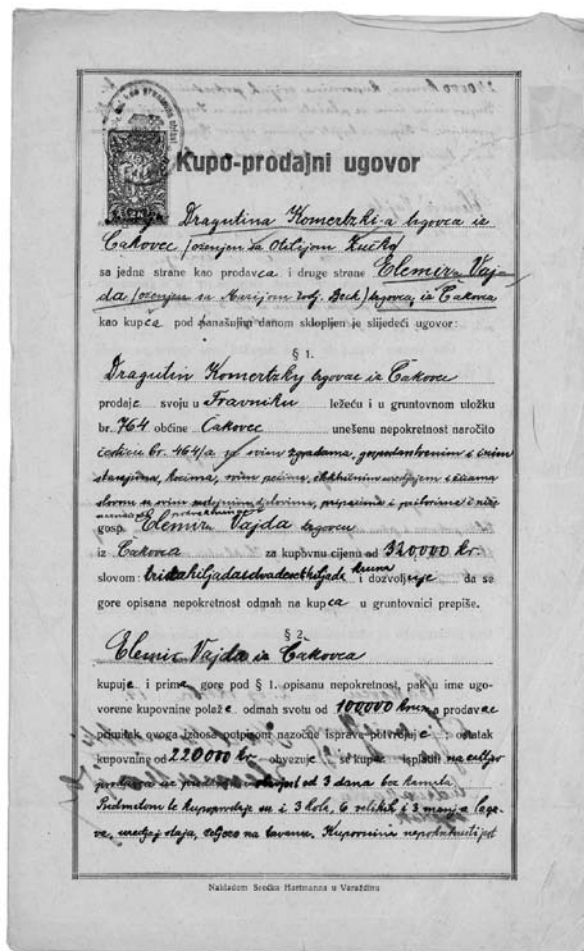 Kupo-prodajni ugovor
Dragutina Komertzki-a trgovca iz
Čakovec /oženjen sa Otilijom Kučko/
sa jedne strane kao prodavca i druge strane Elemira Vaj-
da /oženjen sa Marijom rodj. Beck/ trgovca iz Čakovca
kao kupca pod današnjim danom sklopljen je slijedeći ugovor:
§ 1.
Dragutin Komertzky trgovac iz Čakovca
prodaje svoju u Travniku ležeću i u gruntovnom ulošku
br. 764 občine Čakovec unešenu nepokretnost naročito
česticu br. 464/a sa svim zgradama, gospodarstvenim i inim
svim električnim uredjajem
sa svim
gosp. Elemiru Vajda trgovcu
iz Čakovca za kupovnu cijenu od 320000 kr.
slovom: tristahiljadadvadesethiljade kruna i dozvoljuje da se
gore opisana nepokretnost odmah na kupca u gruntovnici prepiše.
§ 2.
Elemir Vajda iz Čakovca
kupuje i prima gore pod § 1. opisanu nepokretnost, pak u ime ugo-
vorene kupovnine polaže odmah svotu od 100000 kruna a prodavac
primitak ovoga iznosa potpisom nazočne isprave potvrdjuje ostatak
kupovnine od 220000 kr. obvezuje se kupac isplatiti
od 3 dana bez kamata
Predmetom te kupoprodaje su i 3 kola, 6 velikih i 3 manja lage-
va, uredjaj staja, na tavanu. Kupovnina nepokretnosti jest
Nakladom Srećka Hartmanna u Varaždinu